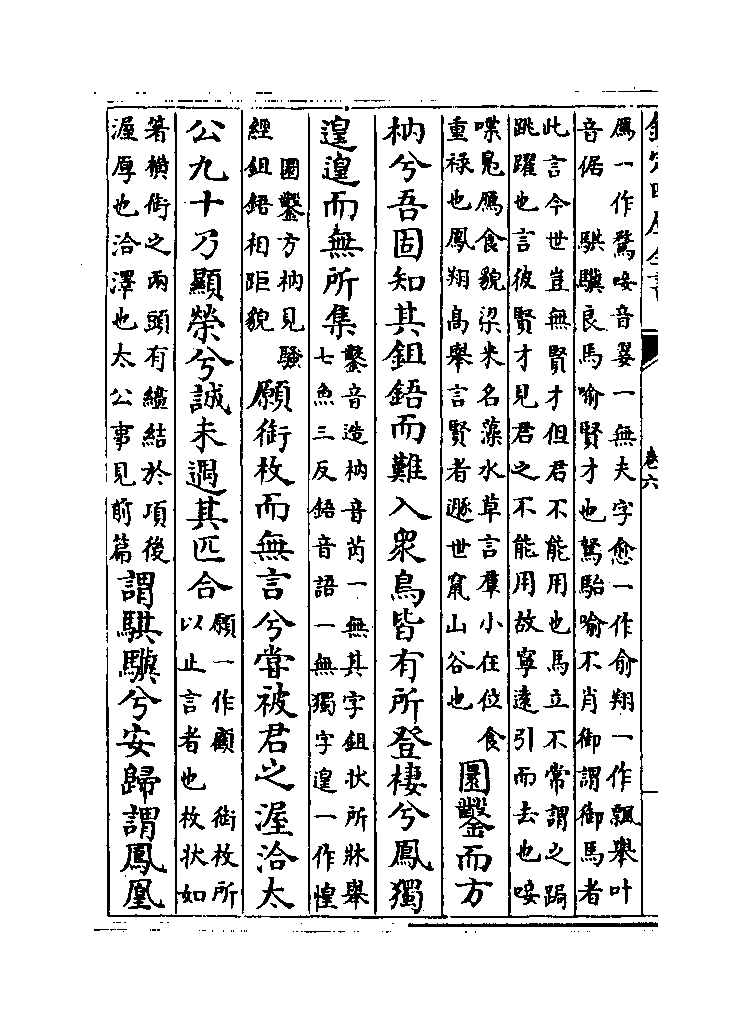 欽定四庫全書 卷六
鴈一作鶩唼音翣一無夫字愈一作俞翔一作飄舉叶
音倨 騏驥良馬喻賢才也駑駘喻不肖御謂御馬者
此言今世豈無賢才但君不能用也馬立不常謂之跼
跳躍也言彼賢才見君之不能用故寧遠引而去也唼
喋鳬鴈食貌梁米名藻水草言羣小在位食
重禄也鳳翔髙舉言賢者遯世竄山谷也
圜鑿而方
枘兮吾固知其鉏鋙而難入衆鳥皆有所登棲兮鳳獨
遑遑而無所集
鑿音造枘音芮一無其字鉏狀所牀舉
七魚三反鋙音語一無獨字遑一作惶
圜鑿方枘見騷
經鉏鋙相距貌
願銜枚而無言兮嘗被君之渥洽太
公九十乃顯榮兮誠未遇其匹合
願一作顧 銜枚所
以止言者也枚狀如
箸橫銜之兩頭有繣結於項後
渥厚也洽澤也太公事見前篇
謂騏驥兮安歸謂鳳凰